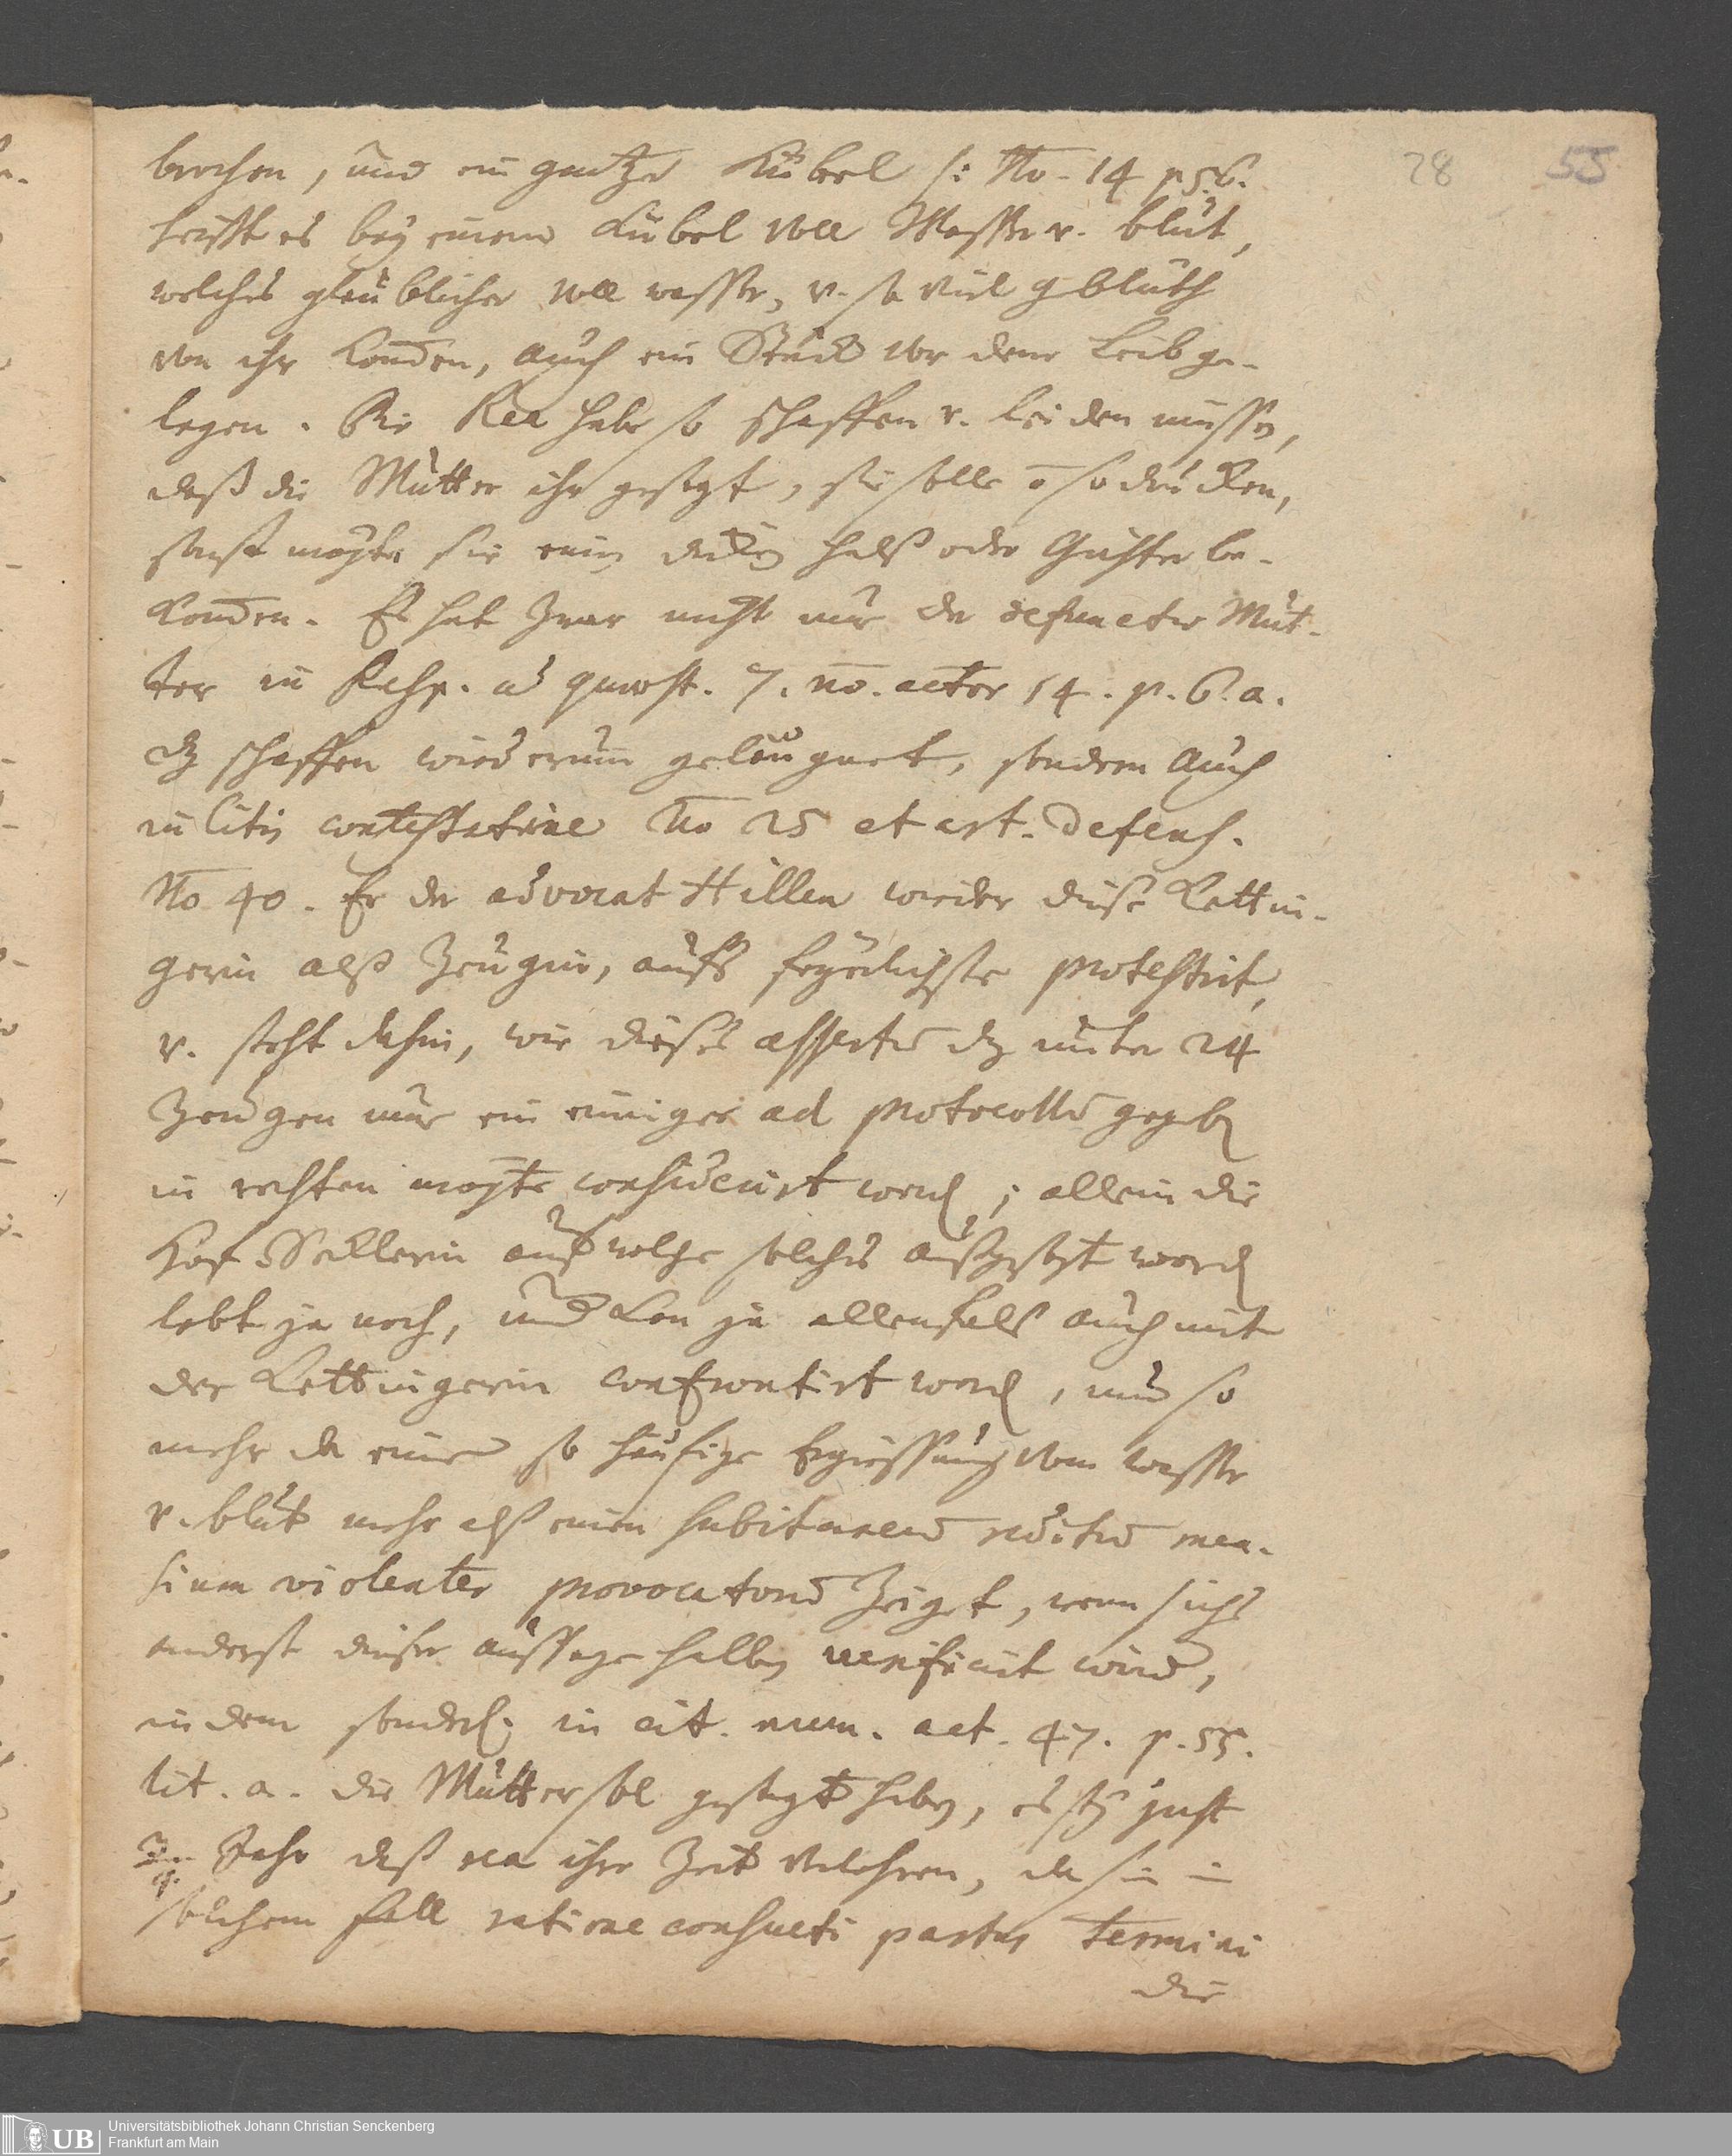 28 55
brochen, und ein gantzer Kübel /: No. 14 p. 5. 6.
heißt es bey einem Kübel voll Wasser v. blut,
welches glaublicher voll wasser, v. so viel geblüth
von ihr kom̄en, auch ein Stück vor dem Leib ge-
legen. Die Rea habe so schaffen v. leiden müssen,
daß die Mutter ihr gesagt, sie solle so drucken,
sonst mögte sie ein dicken Halß oder Güchter be-
kom̄en. Es hat zwar nicht nur der defunctae Mut-
ter in Resp. ad quaest. 7. no. actor 14. p. 6. a.
dz schaffen wiederum geläugnet, sondern auch
in litis contestatione No 25 et art. Defens.
No 40. Er der advocat Hillen wieder diese Kettin-
gerin alß Zeugin, aufs feyerlichste protestirt,
v. steht dahin, wie dieses assertum dz unter 24
Zeugen nur ein einiger ad protocollum gegeben
in rechten mögte considerirt werden; allein die
Hof Sattlerin auf welche solches außgesagt worden
lebt ja noch, und kan ja allenfalls auch mit
der Kettingerin confrontirt werden, um so
mehr da eine so häufige Ergiessung von wasser
v. blut mehr alß einen subitaneum reditum men-
sium violenter provocatorum zeiget, wenn sichs
anderst dieser aussage halben verificirt wird,
in dem sonderl. in cit. num. act. 47. p. 55.
lit. a. die Mutter soll gesagt haben, es sey just
Jahr daß rea ihre Zeit verlohren, da sie in
solchem fall ratione consueti partus termini
die
Universitätsbibliothek Johann Christian Senckenberg
Frankfurt am Main
UB